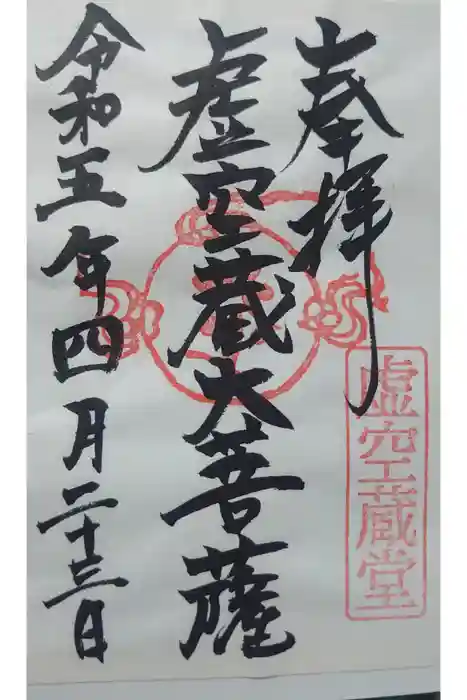 奉拝
虚空蔵堂
虚空蔵大菩薩
令和五年四月二十三日